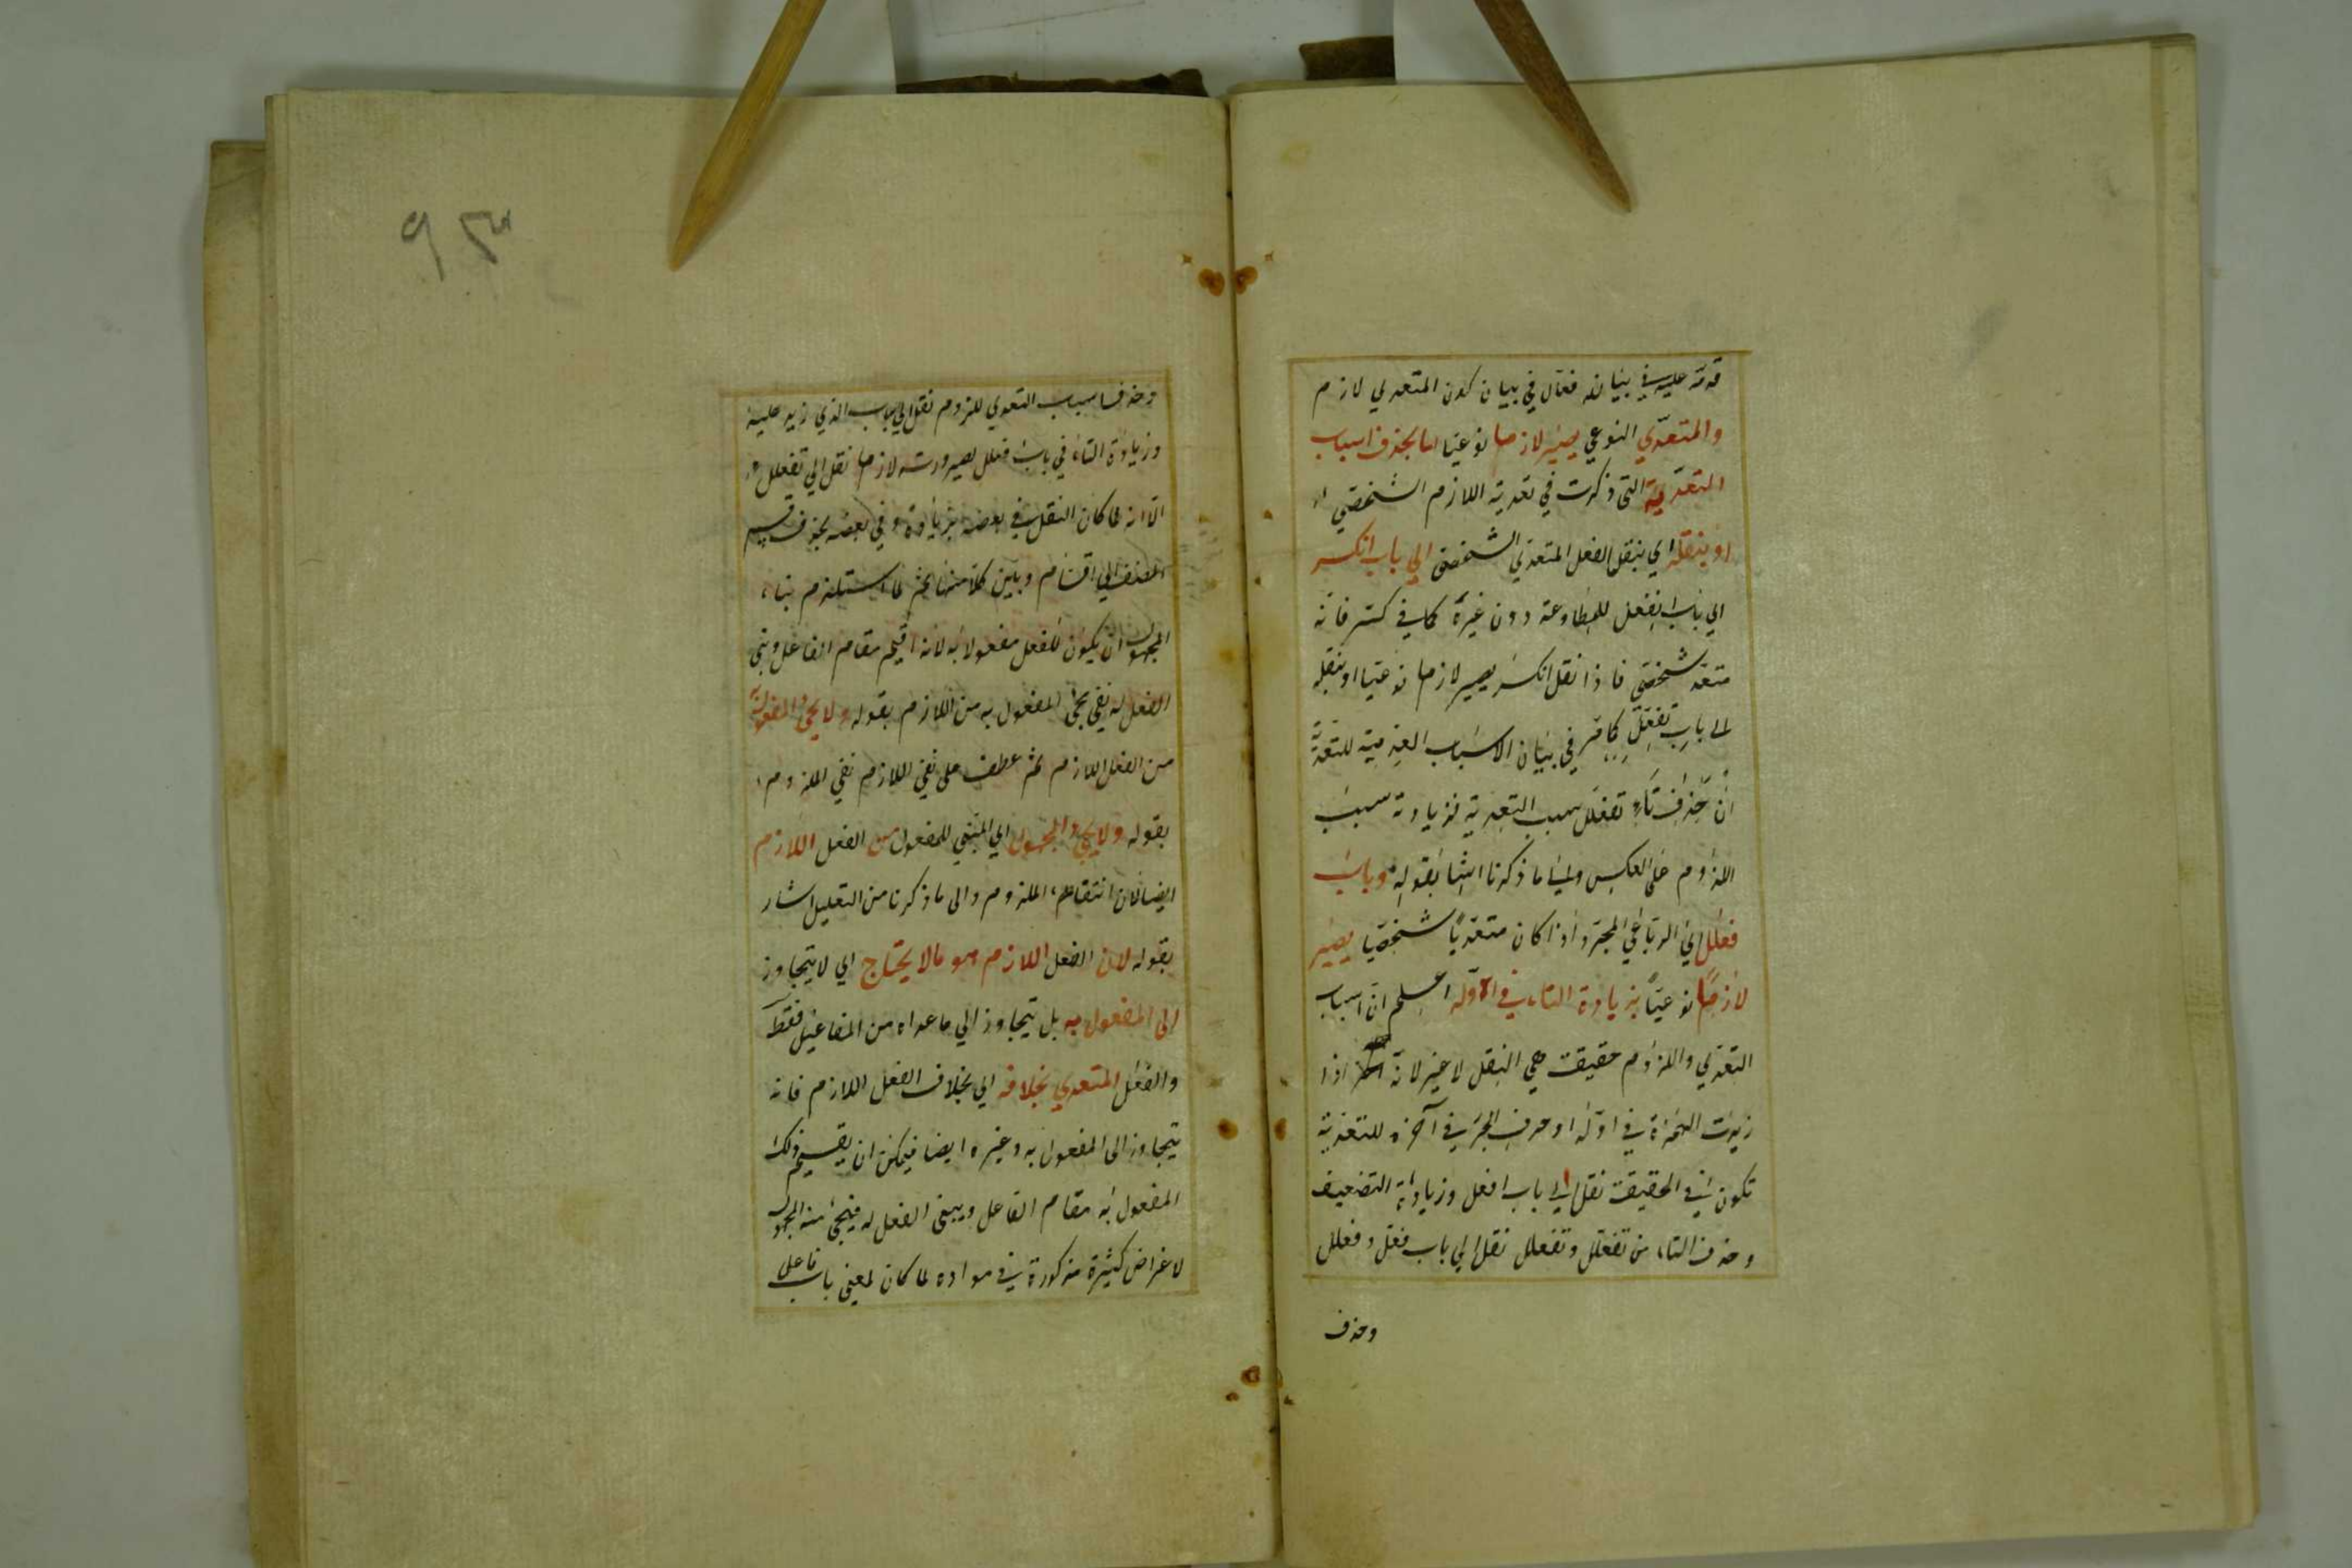 قدمه عليه في بيانه فقال في بيان كون المتعدي لازم
والمتعدّي النوعي يصير لازما نوعيا اما بحذف اسباب
التعدّية التى ذكرت في تعدية اللازم الشخصّي او
او بنقله اي بنقل الفعل المتعدّي الشخصى الي باب انكسر
الي باب انفعل للمطاوعة دون غيره كما في كسّر فانه
متعد شخصى فاذا نقل انكسر يصير لازما نوعيا او بنقله
الى باب تفعّل كما مّر في بيان الاسباب العدمية للتعدّية
انّ حذف تاء تفعلل سبب التعدية فزيادته سبب
اللزوم على العكس والى ما ذكرنا اشار بقوله وباب
فعلل اي الرباعي المجرّد اذا كان متعدّيا شخصّيا يصير
لازما نوعيا بزيادة التاء في اوّله اعلم انّ اسباب
التعدّي واللزوم حقيقت هي النقل لا غير لانه اذا
زيدت الهمزة في اوّله او حرف الجرّ في آخره للتعدية
تكون في الحقيقت نقل الي باب افعل وزيادة التضعيف
وحذف التاء من تفعّل وتفعلل نقل الي باب فعّل وفعلل
وحذف
٩٣
وحذف اسباب التعدي للزوم نقل الي باب الذي زيد عليه
وزيادة التاء في باب فعلل لصيرورته لازما نقل الي تفعلل
الّا انه لما كان النقل في بعضه بزيادة وفي بعضه بحذف قسم
المصنف الي اقسام وبيّن كلا منها ثم لما استلزم بناء
المجهول ان يكون للفعل مفعولا به لانه اقيم مقام الفاعل وبني
الفعل له نفي مجئ المفعول به من اللازم بقوله ولا يجئ المفعول به
من الفعل اللازم ثم عطف على نفي اللازم نفي الملزوم
بقوله ولا يجئ المجهول اي المبني للمفعول من الفعل اللازم
ايضا لان انتقاء الملزوم والى ما ذكرنا من التعليل اشار
بقوله لان الفعل اللازم هو ما لا يحتاج اي لا يتجاوز
الى المفعول به بل يتجاوز الي ما عداه من المفاعيل فقط
والفعل المتعدي بخلافه اي بخلاف الفعل اللازم فانه
يتجاوز الى المفعول به وغيره ايضا فيمكن ان يقسم ذلك
المفعول به مقام الفاعل ويبنى الفعل له فيجئ منه المجهول
لاغراض كثيرة مذكورة في مواده لما كان لمعنى باب فاعل